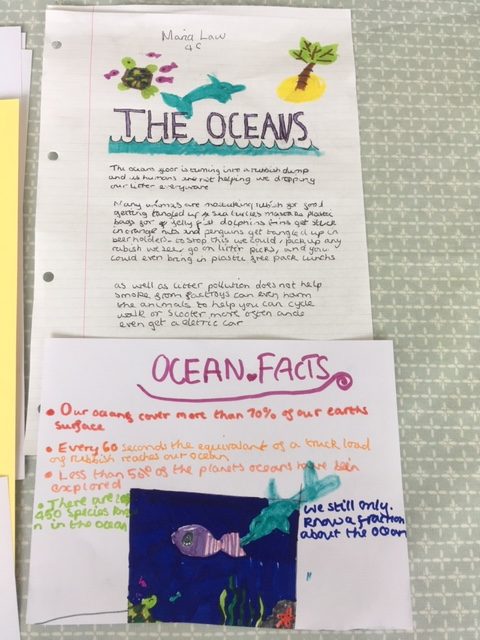 Maria Law
4C
THE OCEANS
The ocean floor is turning into a rubbish dump
and us humans are not helping we dropping
our litter everyware
Many animals are mistaking rubish for food
getting tangled up sea turtles mistake plastic
bags for jelly fish dolphins fins get stuck
in orange nets and penguins get tangled up in
beer holders. to stop this we could, pick up any
rubish we see, go on litter picks, and you
could even bring in plastic free pack lunchs
as well as litter pollution does not help
smoke from factorys can even harm
the animals to help you can cycle
walk or scooter more often and
even get a eletric car
OCEAN FACTS
• Our oceans cover more than 70% of our earths
surface
• Every 60 seconds the equivalent of a truck load
of rubbish reaches our ocean
• Less than of the planets oceans have been
explored
• There are
species
in the ocean
we still only
know a fraction
about the ocean